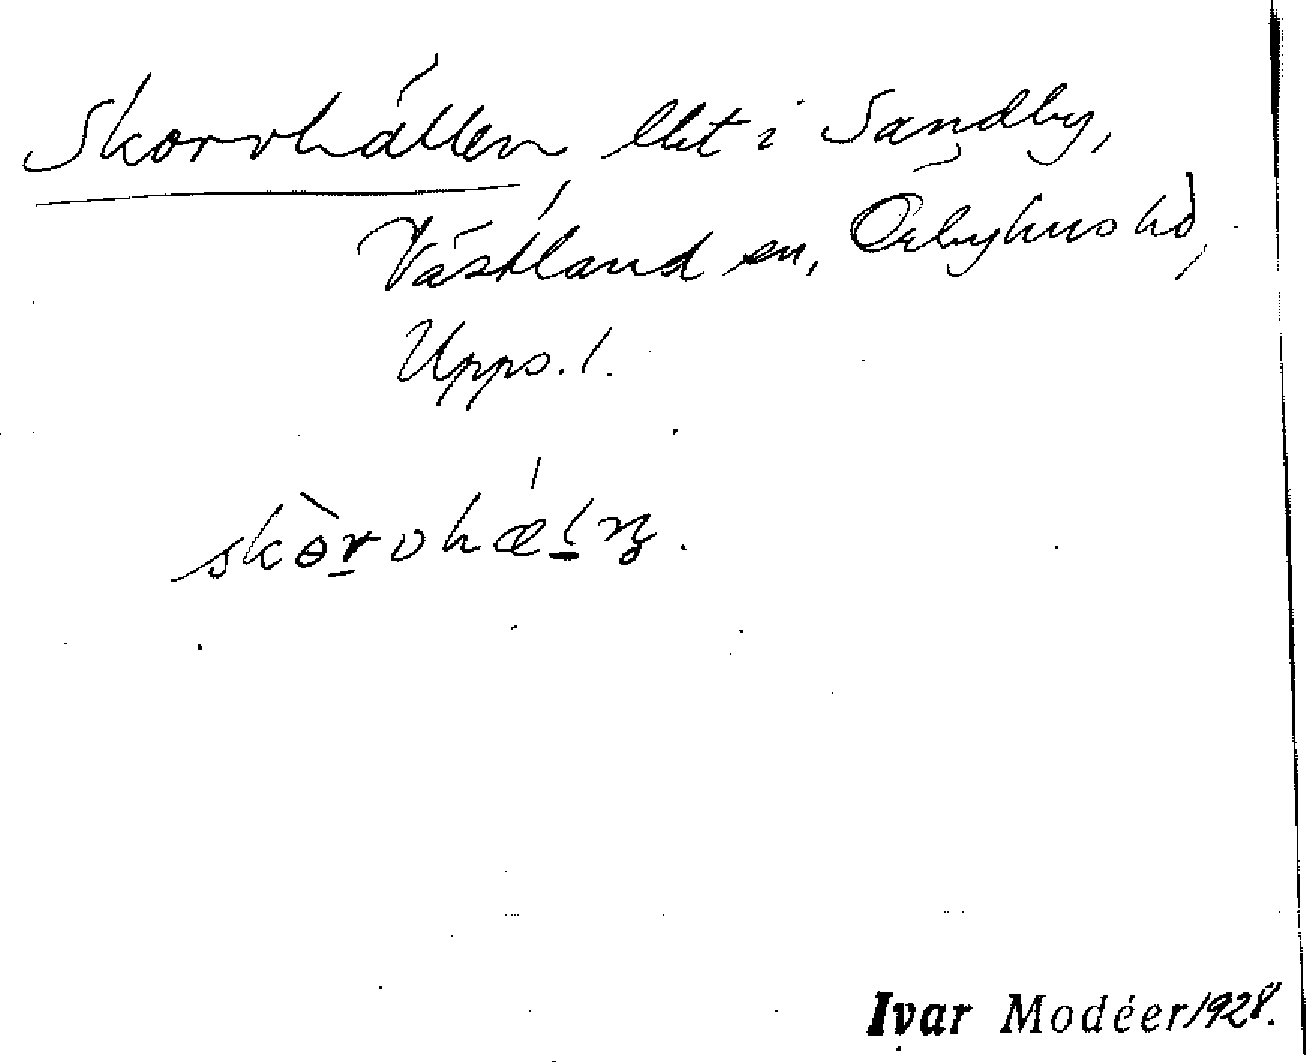 Skorvhällen lht i Sandby,
Västland sn, Örbyhus hd,
Upps. l.
skòrvhæļn̥.
Ivar Modéer 1928.